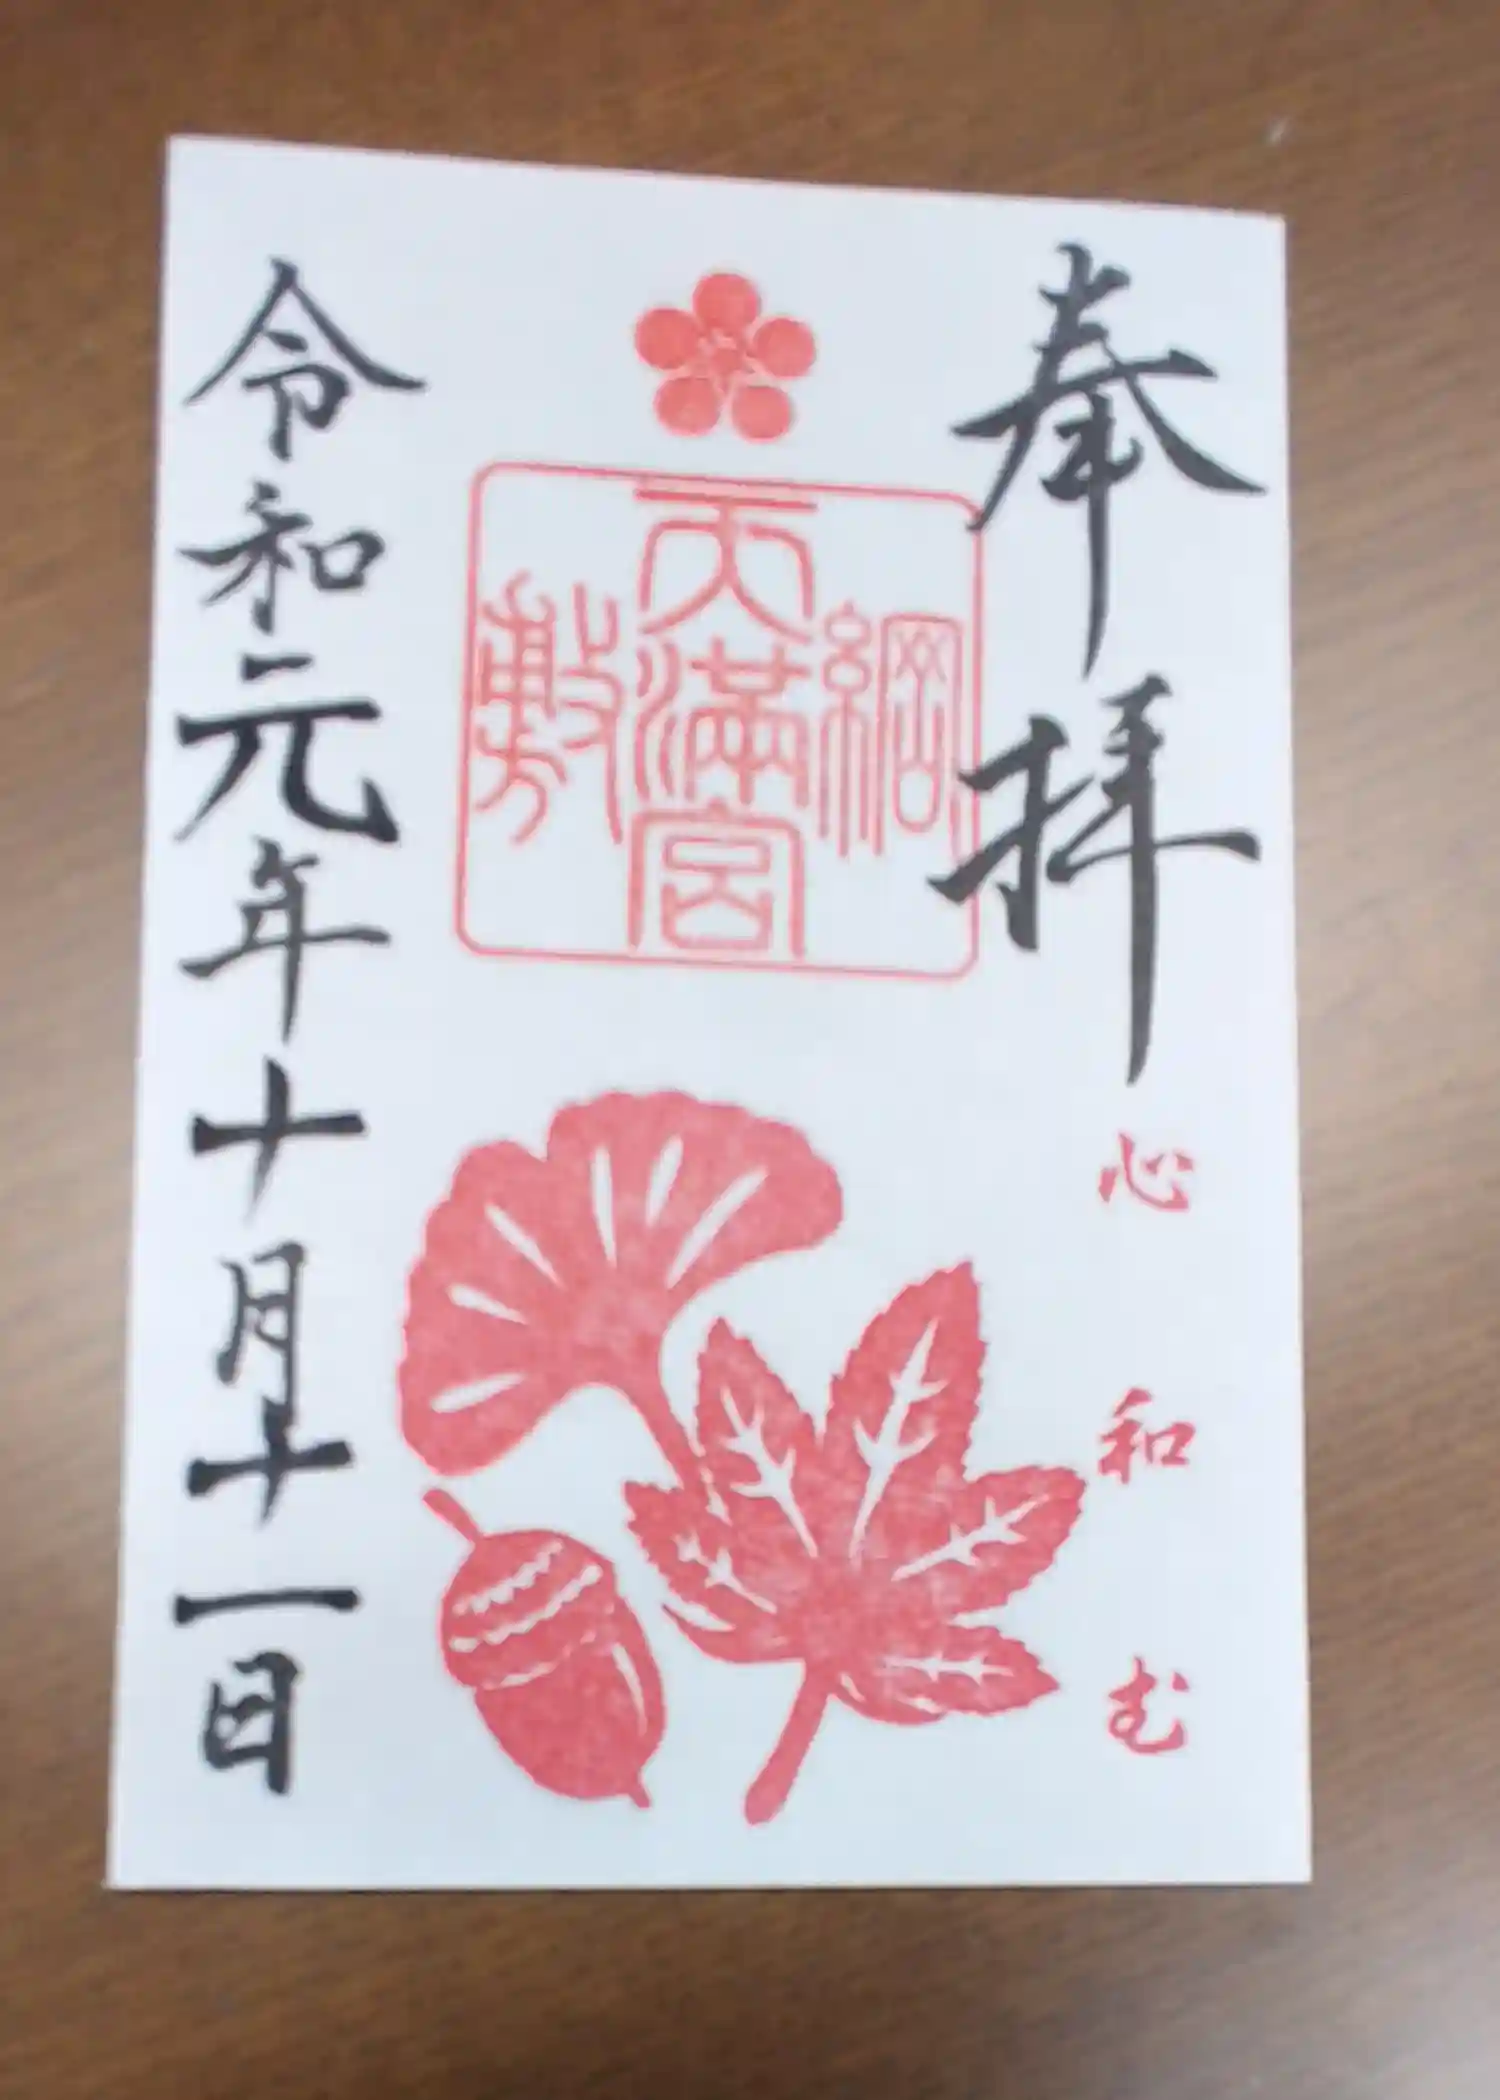 奉拝
心和む
綱敷
天満宮
令和元年十月十一日